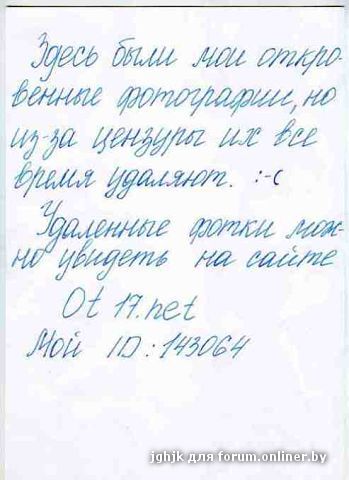 Здесь были мои откро-
венные фотографии, но
из-за цензуры их все
время удаляют. :-(
Удаленные фотки мож-
но увидеть на сайте
Ot 17.net
Мой ID: 143064
jghjk для forum.onliner.by